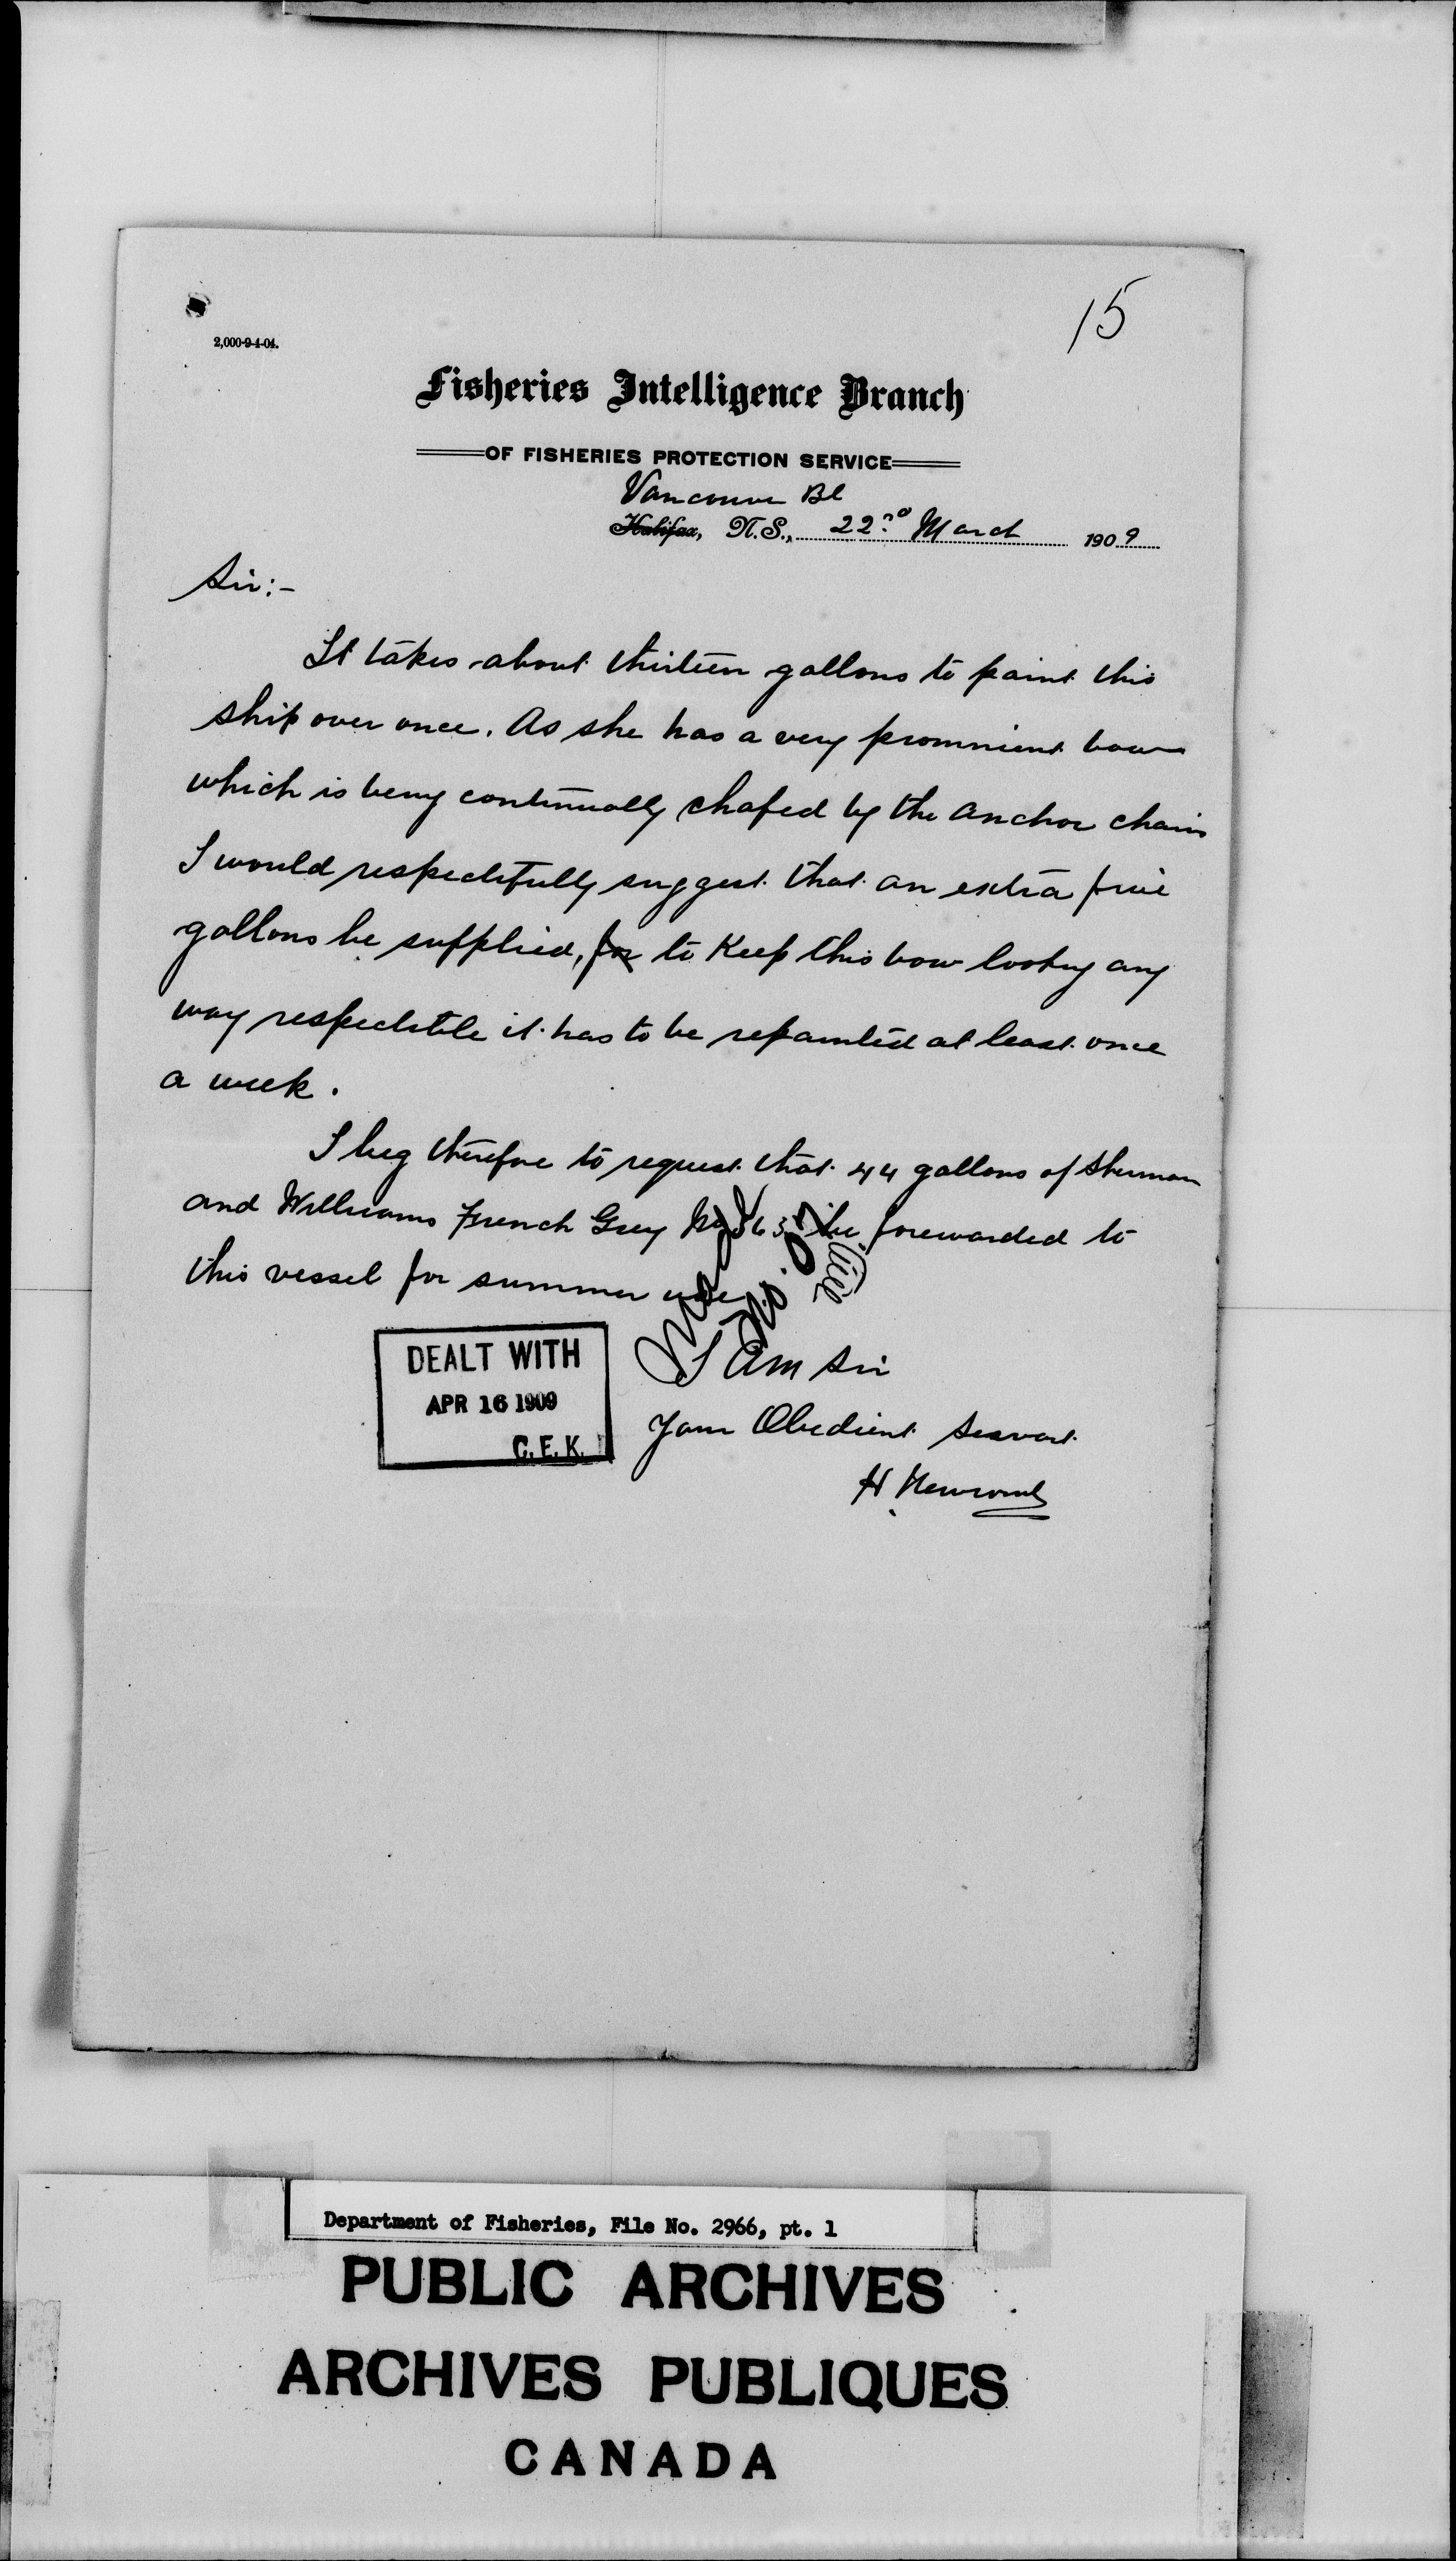 15
2,000-9-4-04.
Fisheries Intelligence Branch
OF FISHERIES PROTECTION SERVICE
Vancouver BC
Halifax, N.S., 22nd March 1909
Sir:-
It takes about thirteen gallons to paint this
ship over once. As she has a very prominent bow
which is being continually chafed by the anchor chains
I would respectfully suggest that an extra five
gallons be supplied, for to Keep this bow looking any
way respectable it has to be repainted at least once
a week.
I beg therefore to request that 44 gallons of Sherman
and Williams French Grey No be forewarded to
this vessel for summer use
I am Sir
Your Obedient Servant
H Newcomb
DEALT WITH
APR 16 1909
C. E. K.
Department of Fisheries, File No. 2966, pt. 1
PUBLIC ARCHIVES
ARCHIVES PUBLIQUES
CANADA